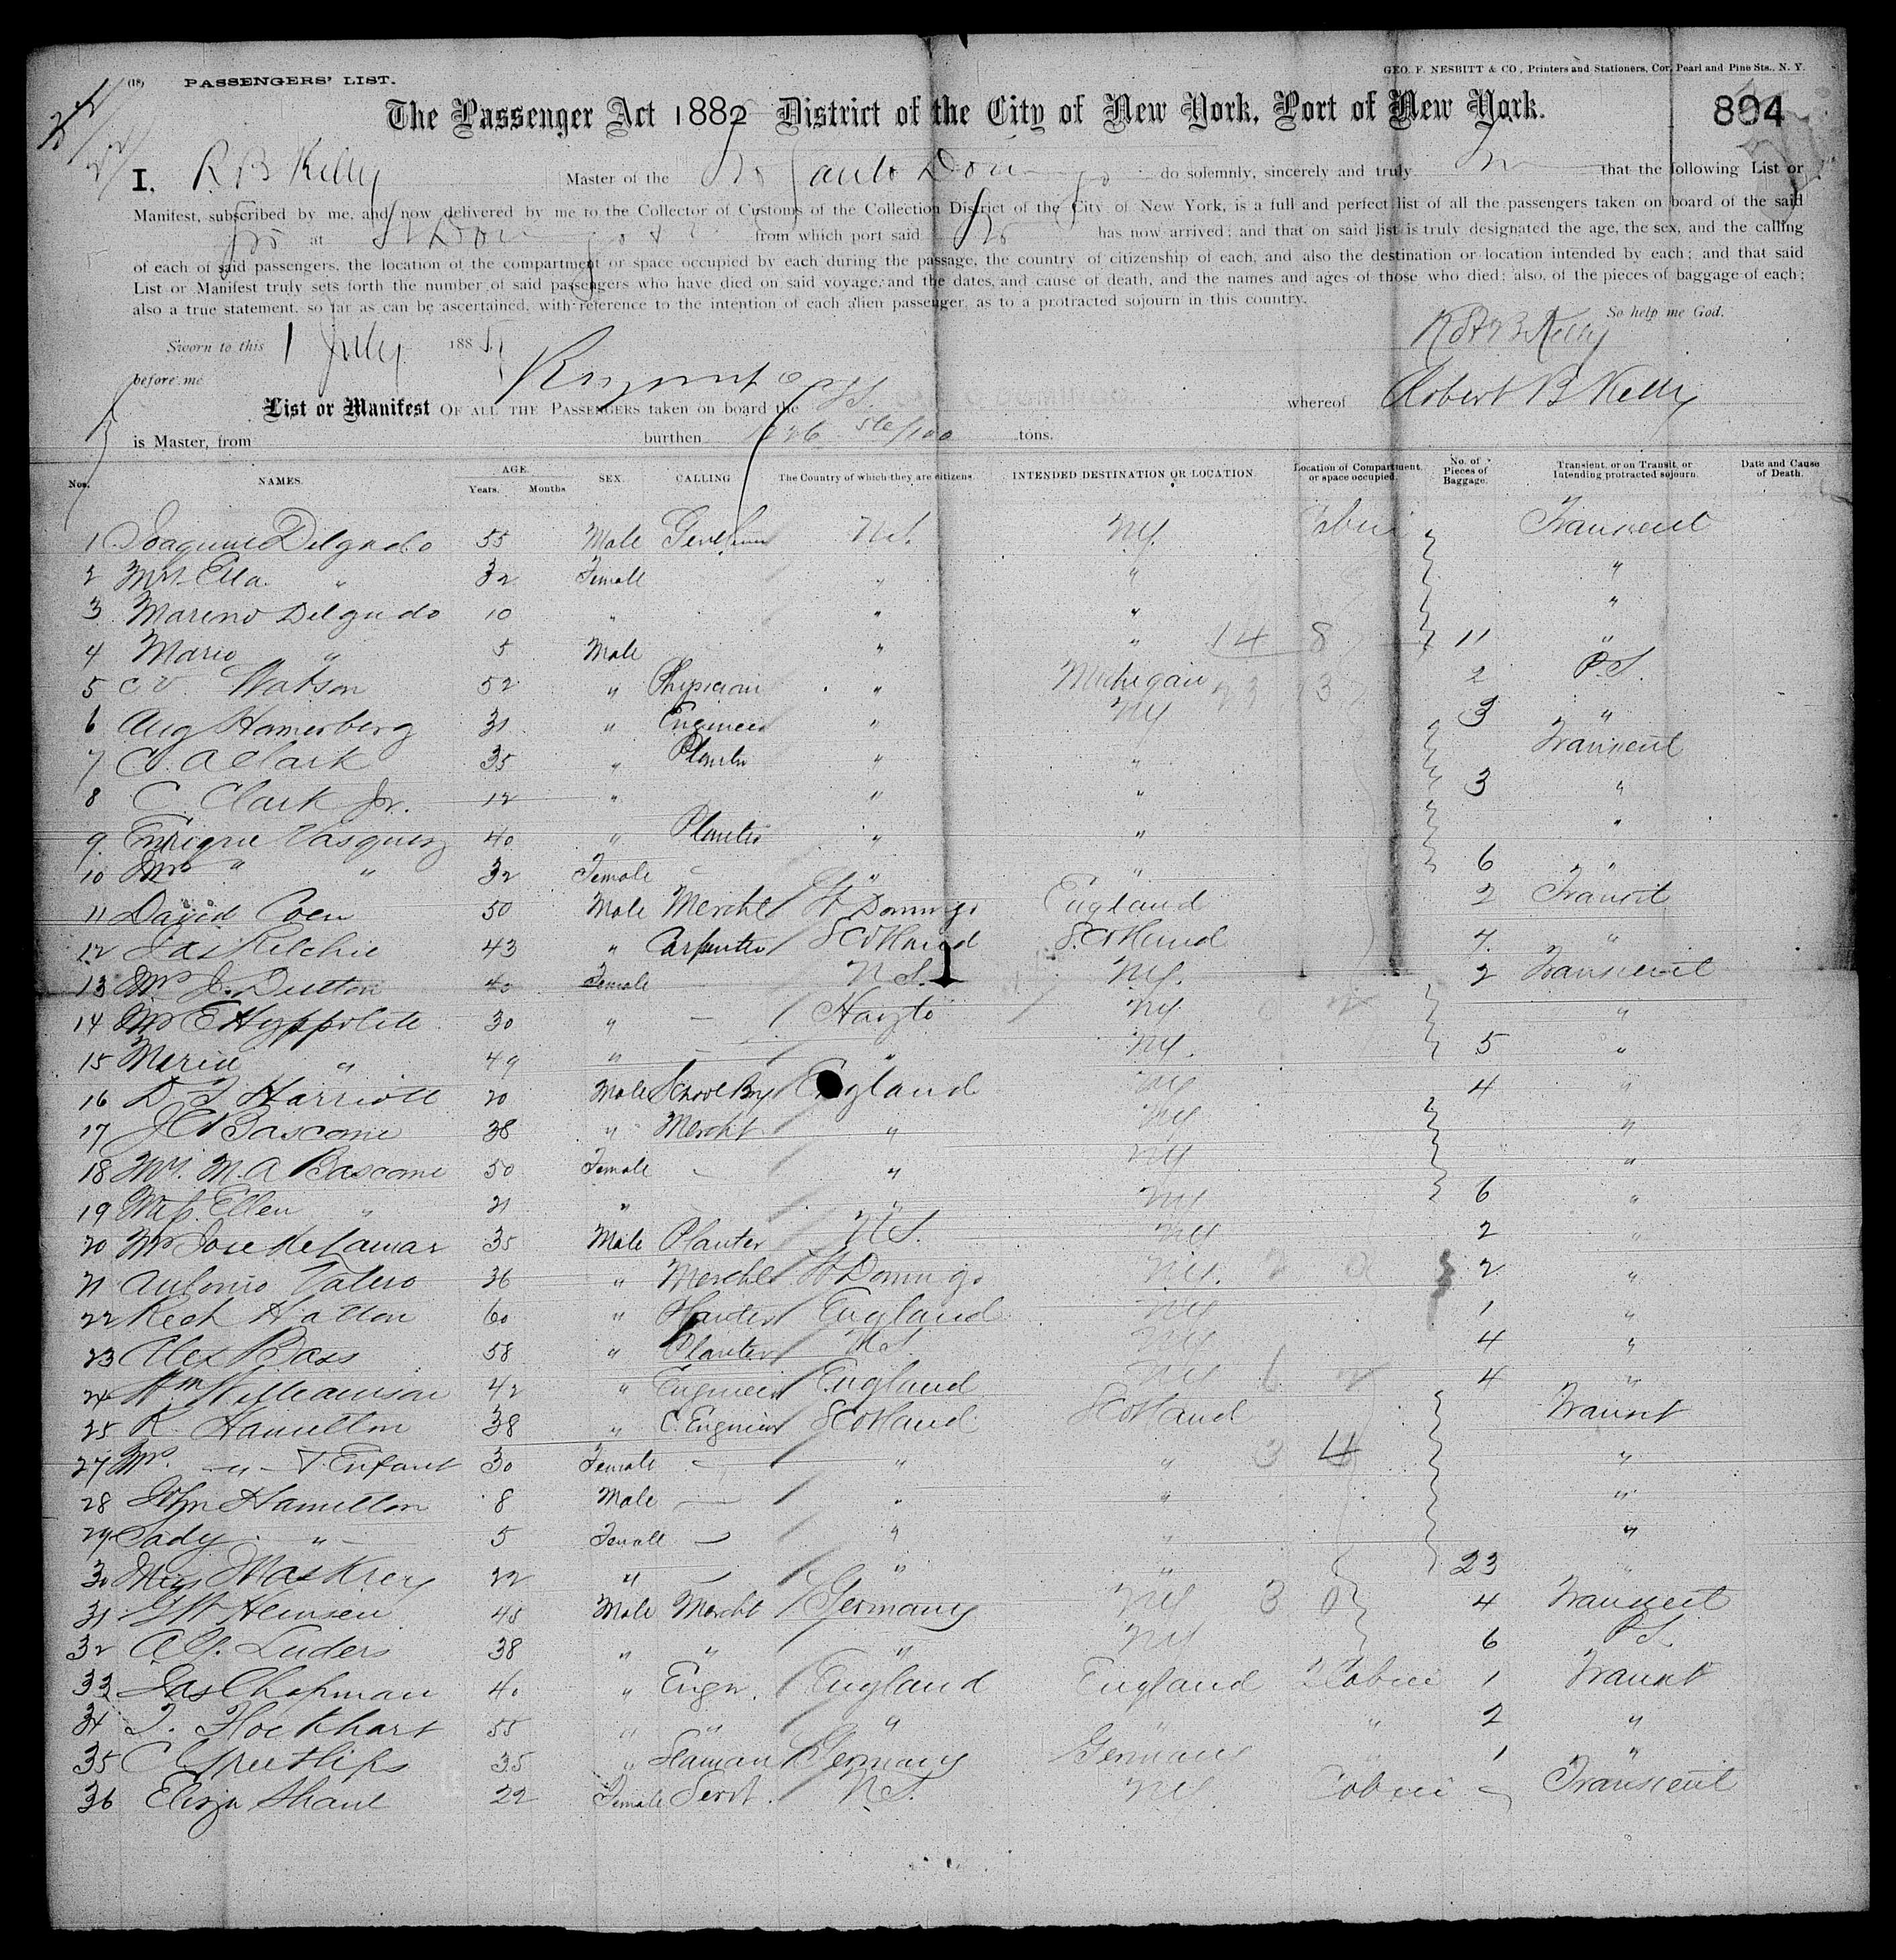 (18) PASSENGERS' LIST.
GEO. F. NESBITT & CO., Printers and Stationers, Cor. Pearl and Pine Sts., N. Y.
The Passenger Act 1882 District of the City of New York, Port of New York.
804
I, R B Kelly Master of the Santo Domingo do solemnly, sincerely and truly that the following List or
Manifest, subscribed by me, and now delivered by me to the Collector of Customs of the Collection District of the City of New York, is a full and perfect list of all the passengers taken on board of the said
at St Domingo from which port said has now arrived; and that on said list is truly designated the age, the sex, and the calling
of each of said passengers, the location of the compartment or space occupied by each during the passage, the country of citizenship of each, and also the destination or location intended by each; and that said
List or Manifest truly sets forth the number of said passengers who have died on said voyage, and the dates, and cause of death, and the names and ages of those who died; also, of the pieces of baggage of each;
also a true statement, so far as can be ascertained, with reference to the intention of each alien passenger, as to a protracted sojourn in this country.
So help me God.
Sworn to this 1 July 188
Robt B Kelly
before me
List or Manifest OF ALL THE PASSENGERS taken on board the whereof Robert B Kelly
is Master, from burthen 56/100 tons.
Nos. NAMES. AGE. Years. Months. SEX. CALLING The Country of which they are citizens. INTENDED DESTINATION OR LOCATION. Location of Compartment, or space occupied. No. of Pieces of Baggage. Transient, or on Transit, or Intending protracted sojourn. Date and Cause of Death.
1 Joaquine Delgado 55 Male Gentleman U.S. NY. Cabin Transient
2 Mrs. Ella " 32 Female " " "
3 Mareno Delgado 10 " " " "
4 Mario " 5 Male " " 14 8 11 "
5 C V. Watson 52 " Physician " Michigan 2 P.S.
6 Aug Hamerberg 31 " Engineer " NY 3 "
7 C. A Clark 35 " Planter " " Transient
8 C. Clark Jr. 12 " " " 3 "
9 Enrique Vasquez 40 " Planter " " "
10 Mrs " " 32 Female " " 6 "
11 David Coen 50 Male Mercht St Domingo England 2 Transit
12 Jas Ritchie 43 " Carpenter Scotland Scotland 4 "
13 Mrs J. Dutton 40 Female U S. NY. 2 Transient
14 Mrs E Hyppolite 30 " — Hayto NY "
15 Maria " 49 " — " NY. 5 "
16 D J Harriott 20 Male School Boy England NY 4 "
17 J C Bascome 38 " Mercht " NY "
18 Mrs. M. A Bascome 50 Female " NY "
19 Miss. Ellen " 21 " " NY 6 "
20 Mr Jose DeLamar 35 Male Planter U S. NY 2 "
21 Antonio Valero 36 " Mercht St Domingo NY. 2 "
22 Rich Hatton 60 " Planter England NY 1 "
23 Alex Bass 58 " Planter U.S. NY 4 "
24 Wm Williamson 42 " Engineer England NY 4 "
25 R. Hamilton 38 " C. Engineer Scotland Scotland Transit
27 Mrs. — " — & Enfant 30 Female " " 3 4 "
28 John Hamilton 8 Male — " " "
29 Sady " 5 Female — " " "
30 Miss MasKrey 22 " " " 23 "
31 45 Male Mercht Germany NY 3 0 4 Transient
32 Luders 38 " " " NY 6 P.S.
33 Jas Chapman 40 " Engr. England England 2 Cabin 1 Transit
34 55 " " " " " 2 "
35 35 " Seaman Germany Germany " 1 "
36 Eliza Shaul 22 Female Servt. U.S. NY. Cabin Transient